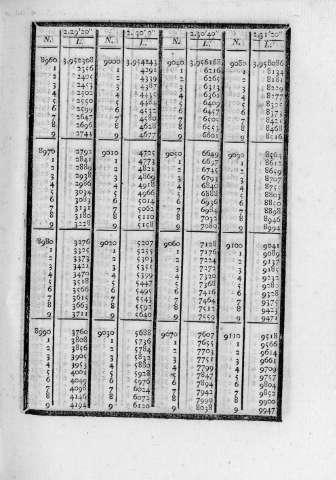 2.29'20" 2.30'0" 2.30'40" 2.31'20"
N. L. N. L. N. L. N. L.
8960 3,952308 9000 3,954243 9040 3,956168 9080 3,958086
1 2356 1 4291 1 6216 1 8134
2 2405 2 4339 2 6265 2 8181
3 2453 3 4387 3 6313 3 8229
4 2502 4 4435 4 6361 4 8277
5 2550 5 4484 5 6409 5 8325
6 2599 6 4532 6 6457 6 8373
7 2647 7 4580 7 6505 7 8420
8 2696 8 4628 8 6553 8 8468
9 2744 9 4677 9 6601 9 8516
8970 2792 9010 4725 9050 6649 9090 8564
1 2841 1 4773 1 6697 1 8612
2 2889 2 4821 2 6745 2 8659
3 2938 3 4869 3 6793 3 8707
4 2986 4 4918 4 6840 4 8755
5 3034 5 4966 5 6888 5 8803
6 3083 6 5014 6 6936 6 8850
7 3131 7 5062 7 6984 7 8898
8 3180 8 5110 8 7032 8 8946
9 3228 9 5158 9 7080 9 8994
8980 3276 9020 5207 9060 7128 9100 9041
1 3325 1 5255 1 7176 1 9089
2 3373 2 5303 2 7224 2 9137
3 3421 3 5351 3 7272 3 9185
4 3470 4 5399 4 7320 4 9232
5 3518 5 5447 5 7368 5 9280
6 3566 6 5495 6 7416 6 9328
7 3615 7 5543 7 7464 7 9375
8 3663 8 5592 8 7512 8 9423
9 3711 9 5640 9 7559 9 9471
8990 3760 9030 5688 9070 7607 9110 9518
1 3808 1 5736 1 7655 1 9566
2 3856 2 5784 2 7703 2 9614
3 3905 3 5832 3 7751 3 9661
4 3953 4 5880 4 7799 4 9709
5 4001 5 5928 5 7847 5 9757
6 4049 6 5976 6 7894 6 9804
7 4098 7 6024 7 7942 7 9852
8 4146 8 6072 8 7990 8 9900
9 4194 9 6120 9 8038 9 9947